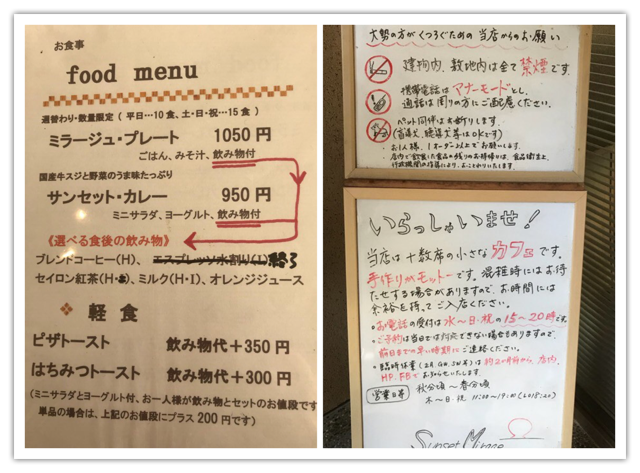 お食事
food menu
週替わり・数量限定（ 平日…10 食、土・日・祝…15 食 ）
ミラージュ・プレート 1050 円
ごはん、みそ汁、飲み物付
国産牛スジと野菜のうま味たっぷり
サンセット・カレー 950 円
ミニサラダ、ヨーグルト、飲み物付
《選べる食後の飲み物》
ブレンドコーヒー(H)、エスプレッソ水割り(I)終了
セイロン紅茶(H・)、ミルク(H・I)、オレンジジュース
軽 食
ピザトースト 飲み物代＋350 円
はちみつトースト 飲み物代＋300 円
(ミニサラダとヨーグルト付、お一人様が飲み物とセットのお値段です
単品の場合は、上記のお値段にプラス 200 円です)
大勢の方が くつろぐための 当店からのお願い
建物内、敷地内は全て 禁煙です。
携帯電話は マナーモードとし、
通話は周りの方にご配慮ください。
ペット同伴はお断りします。
(盲導犬、聴導犬等はOKです)
・お1人様、1オーダー以上でお願いします。
・店内で飲食した食品の残りのお持帰りは、食品衛生上、
行政機関の指導により、おことわりいたします。
いらっしゃいませ！
当店は 十数席の小さな カフェ です。
手作りがモットーです。混雑時にはお待
たせする場合がありますので、お時間には
余裕を持って ご入店ください。
・お電話の受付は 水〜日・祝の 15〜20時です。
・ご予約は当日では対応できない場合もありますので、
前日までの早い時期に ご連絡ください。
・臨時休業(2月,GW,SW等)は 約2か月前から、店内、
HP、FBでお知らせいたします。
営業日等 秋分頃 〜 春分頃
木〜日・祝 11:00〜19:00 (LO18:20)
Sunset Mirage